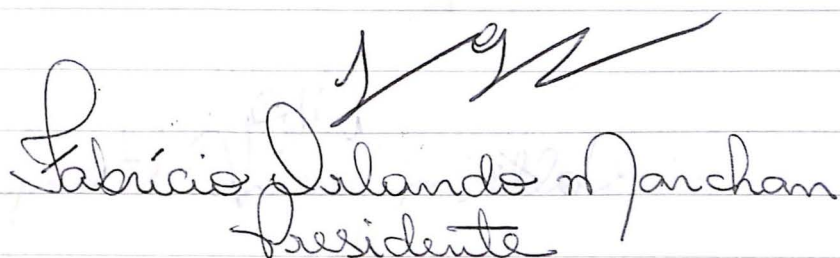 Fabrício Orlando Marchan
Presidente